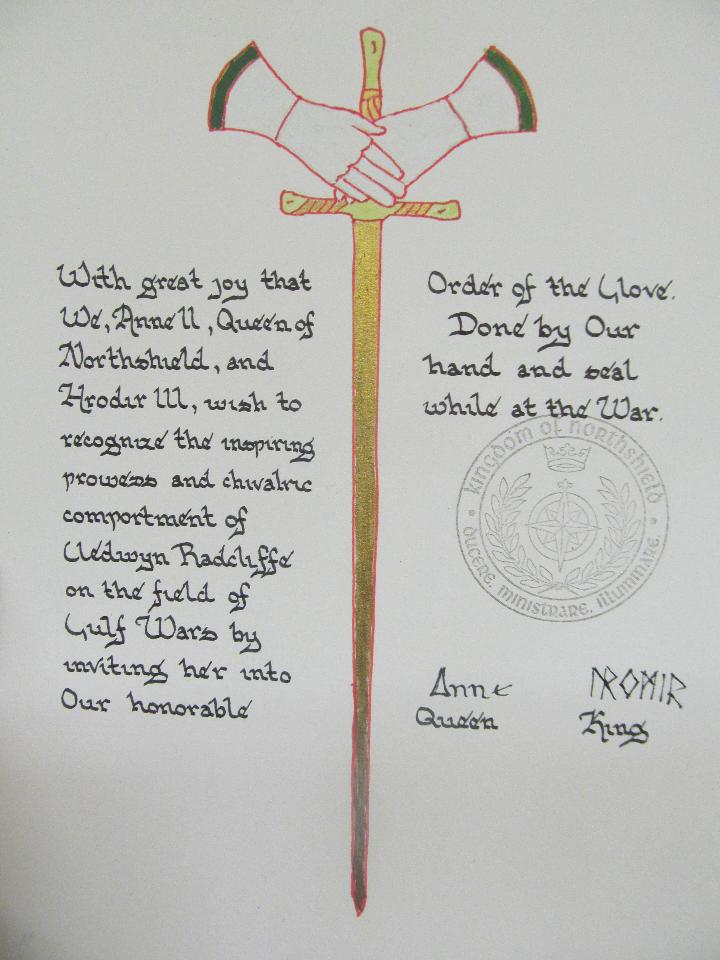 With great joy that
We, Anne II, Queen of
Northshield, and
Hrodir III, wish to
recognize the inspiring
prowess and chivalric
comportment of
Cledwyn Radcliffe
on the field of
Gulf Wars by
inviting her into
Our honorable
Order of the Glove.
Done by Our
hand and seal
while at the War.
kingdom of northshield
ducere, ministrare, illuminare.
Anne
Queen
King